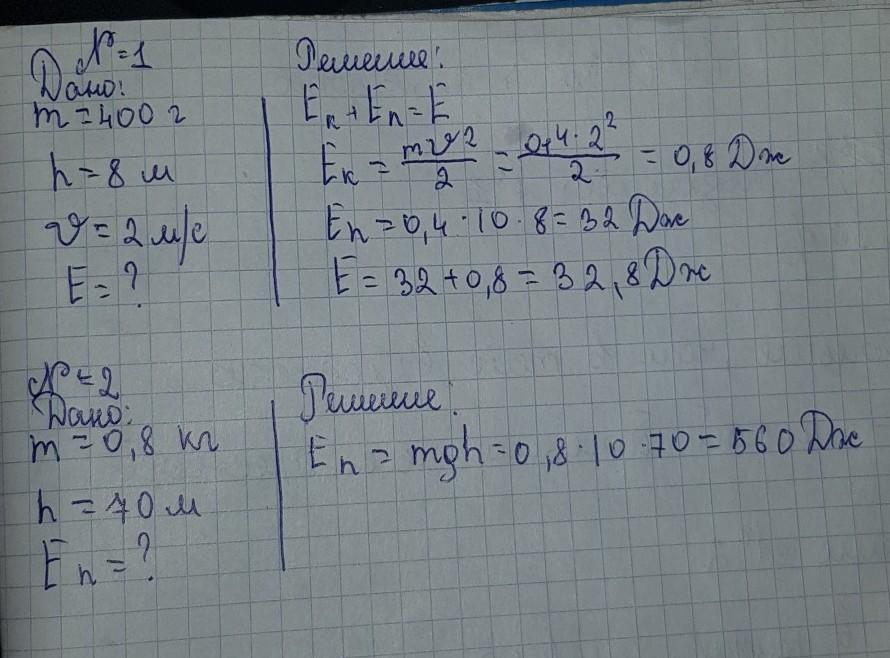 №=1
Дано:
m=400 г
h=8 м
υ=2 м/с
E=?
Решение:
Eк+Eп=E
Eк=mυ²/2=0,4·2²/2=0,8 Дж
Eп=0,4·10·8=32 Дж
E=32+0,8=32,8 Дж
№=2
Дано:
m=0,8 кг
h=70 м
Eп=?
Решение:
Eп=mgh=0,8·10·70=560 Дж